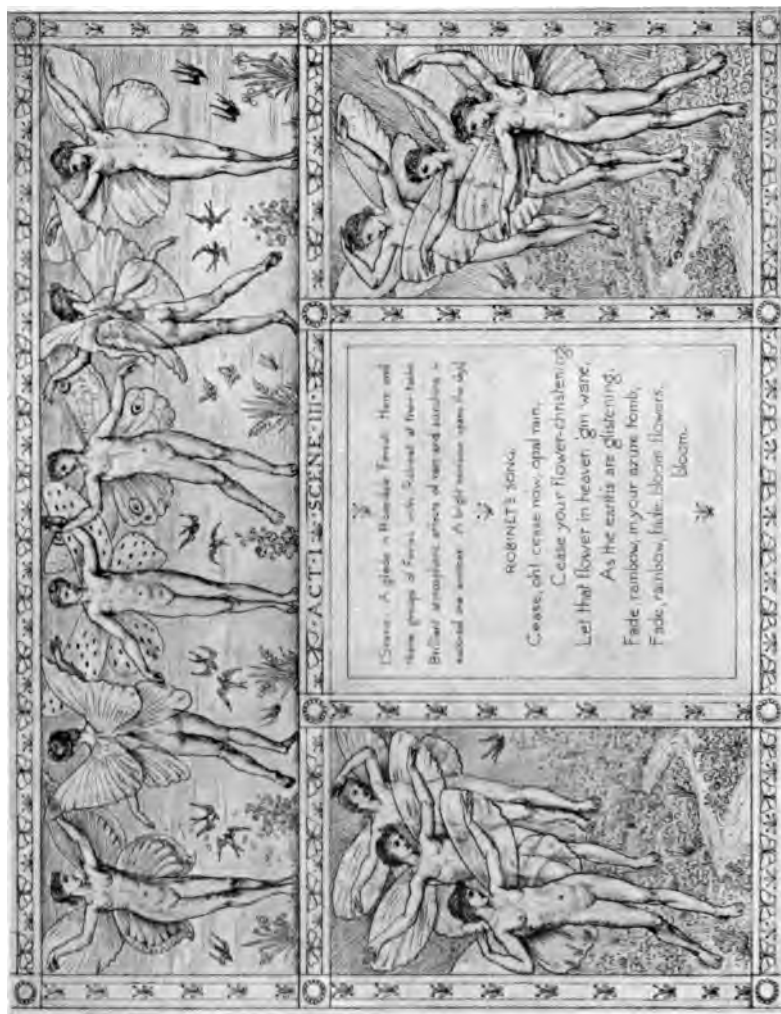 ACT·I· SCENE·III·
(Scene: A glade in Forest. Here and
there groups of Fairies, with Robinet at their
Brilliant atmospheric effects of rain and sunshine in
A bright rainbow spans the sky)
ROBINET'S SONG.
Cease, oh! cease now, opal rain,
Cease your flower-christening;
Let that flower in heaven 'gin wane,
As the earth's are glistening.
Fade, rainbow, in your azure tomb,
Fade, rainbow, fade: bloom flowers,
bloom.